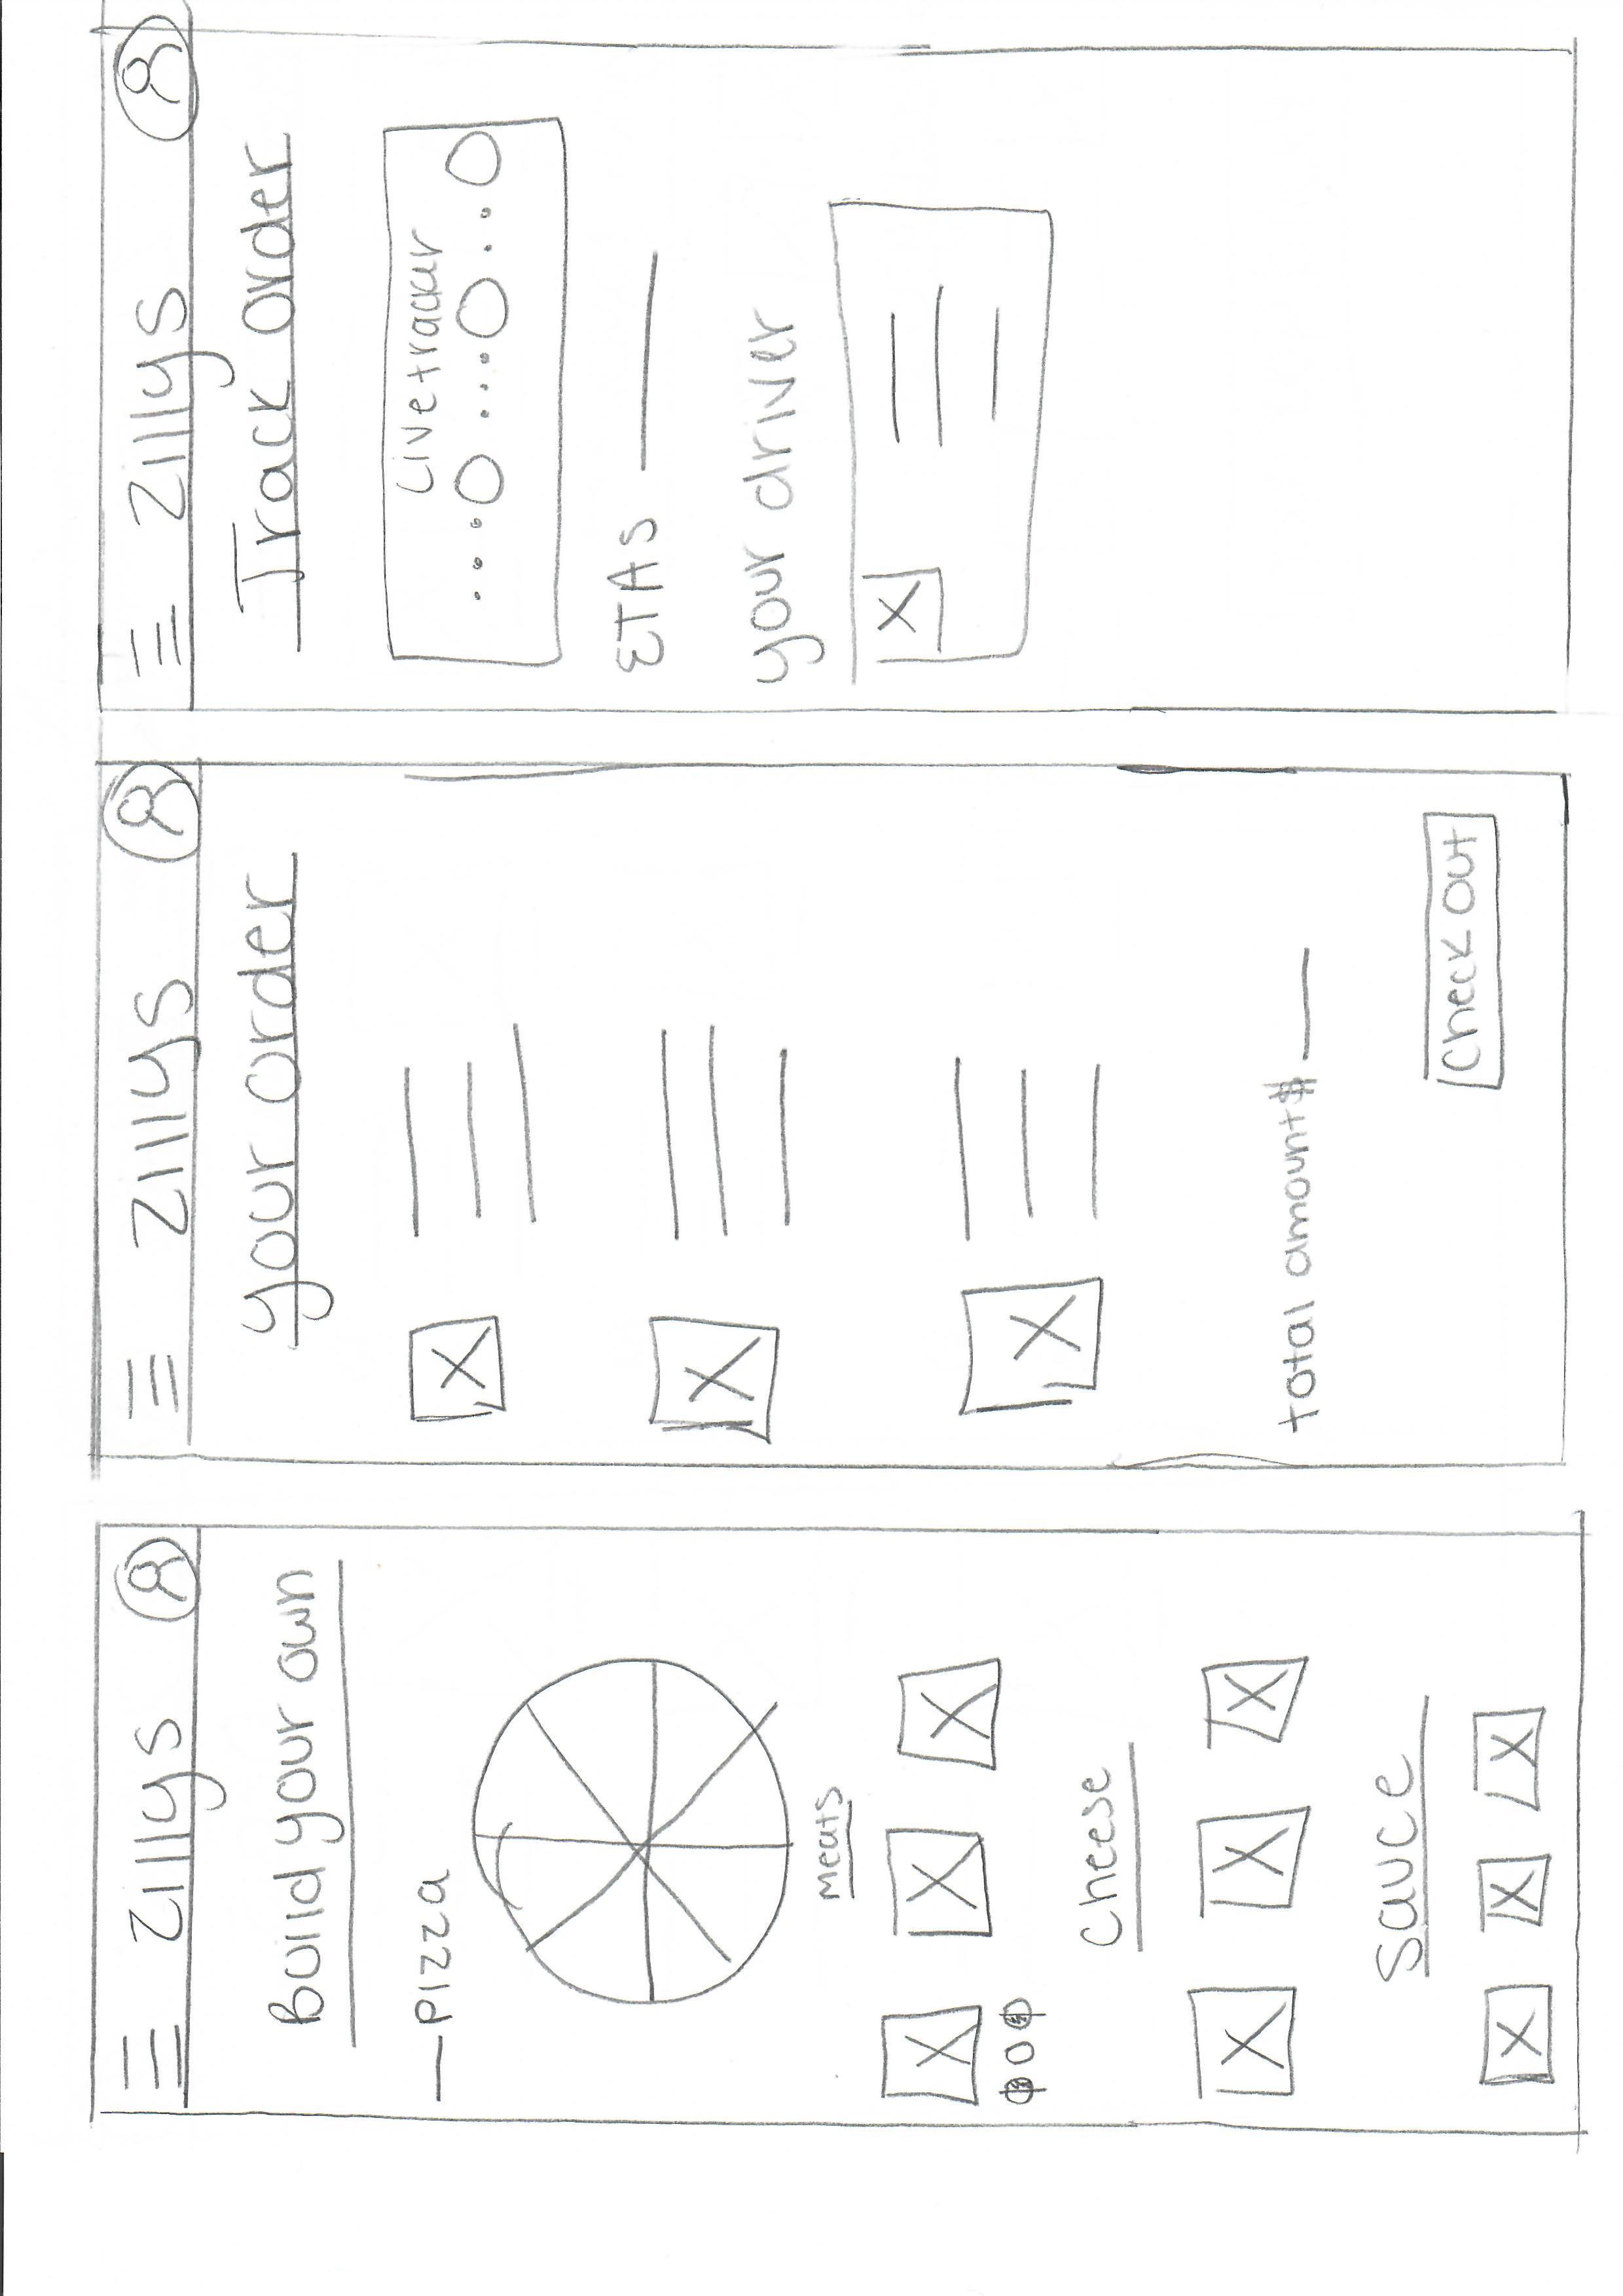 Zillys
Build your own
—Pizza
Meats
Cheese
Sauce
Zillys
your order
total amount $
Check out
Zillys
Track order
Live tracker
ETAs
your driver